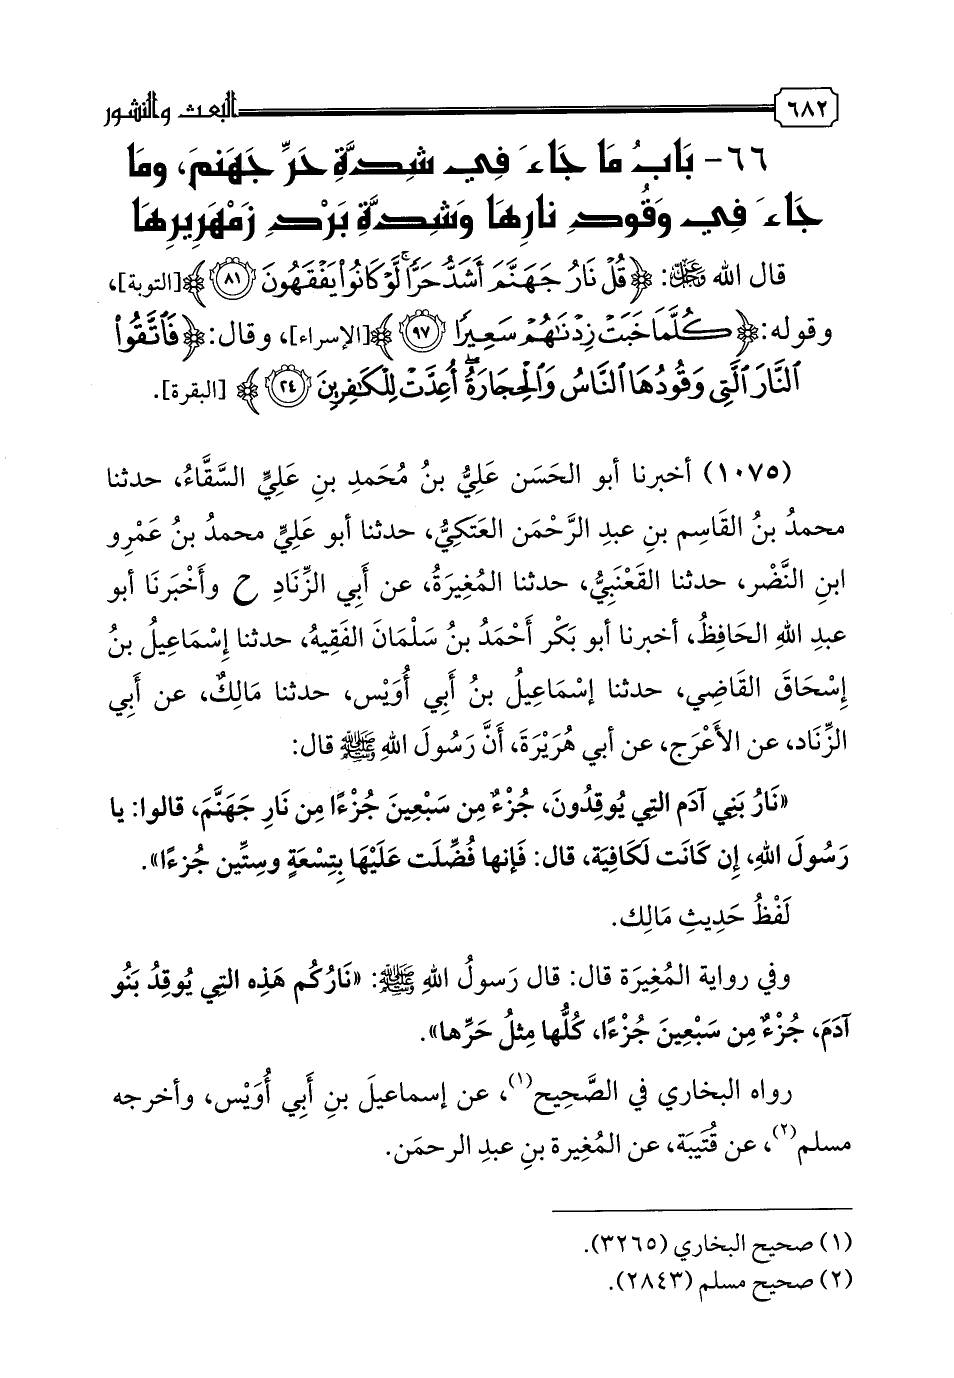 ٦٨٢ البعث والنشور
٦٦- بَابُ مَا جَاءَ فِي شِدَّةِ حَرِّ جَهَنمَ، ومَا
جَاءَ فِي وَقُودِ نارِهَا وَشِدَّةِ بَرْدِ زَمْهَرِيرِهَا
قال الله ﷻ: ﴿قُلْ نَارُ جَهَنَّمَ أَشَدُّ حَرًّا ۚ لَّوْ كَانُوا۟ يَفْقَهُونَ ٨١﴾ [التوبة]،
وقوله: ﴿كُلَّمَا خَبَتْ زِدْنَٰهُمْ سَعِيرًا ٩٧﴾ [الإسراء]، وقال: ﴿فَٱتَّقُوا۟
ٱلنَّارَ ٱلَّتِى وَقُودُهَا ٱلنَّاسُ وَٱلْحِجَارَةُ ۖ أُعِدَّتْ لِلْكَٰفِرِينَ ٢٤﴾ [البقرة].
(١٠٧٥) أخبرنا أبو الحَسَن عَلِيُّ بنُ مُحَمدِ بنِ عَلِيٍّ السَّقَّاءُ، حدثنا
محمدُ بنُ القَاسِم بنِ عبدِ الرَّحْمَن العَتَكِيُّ، حدثنا أبو عَلِيٍّ محمدُ بنُ عَمْرِو
ابنِ النَّضْر، حدثنا القَعْنَبِيُّ، حدثنا المُغِيرَةُ، عن أَبِي الزِّنَادِ ح وأَخْبَرنَا أبو
عبدِ اللهِ الحَافِظُ، أخبرنا أبو بَكْر أَحْمَدُ بنُ سَلْمَانَ الفَقِيهُ، حدثنا إِسْمَاعِيلُ بنُ
إِسْحَاقَ القَاضِي، حدثنا إسْمَاعِيلُ بنُ أَبِي أُوَيْس، حدثنا مَالِكٌ، عن أَبِي
الزِّنَاد، عن الأَعْرَج، عن أبي هُرَيْرَةَ، أَنَّ رَسُولَ اللهِ ﷺ قال:
«نَارُ بَنِي آدَم التي يُوقِدُونَ، جُزْءٌ مِن سَبْعِينَ جُزْءًا مِن نَارِ جَهَنَّمَ، قالوا: يا
رَسُولَ اللهِ، إِن كَانَت لَكَافِيَة، قال: فَإنها فُضِّلَت عَلَيْهَا بِتِسْعَةٍ وسِتِّين جُزءًا».
لَفْظُ حَدِيثِ مَالِك.
وفي رواية المُغِيرَة قال: قال رَسولُ اللهِ ﷺ: «نَارُكُم هَذِه التِي يُوقِدُ بَنُو
آدَمَ، جُزْءٌ مِن سَبْعِينَ جُزْءًا، كُلُّها مِثلُ حَرِّها».
رواه البخاري في الصَّحِيح(١)، عن إسماعيلَ بنِ أَبِي أُوَيْس، وأخرجه
مسلم(٢)، عن قُتَيبَة، عن المُغِيرة بنِ عبدِ الرحمَن.
(١) صحيح البخاري (٣٢٦٥).
(٢) صحيح مسلم (٢٨٤٣).